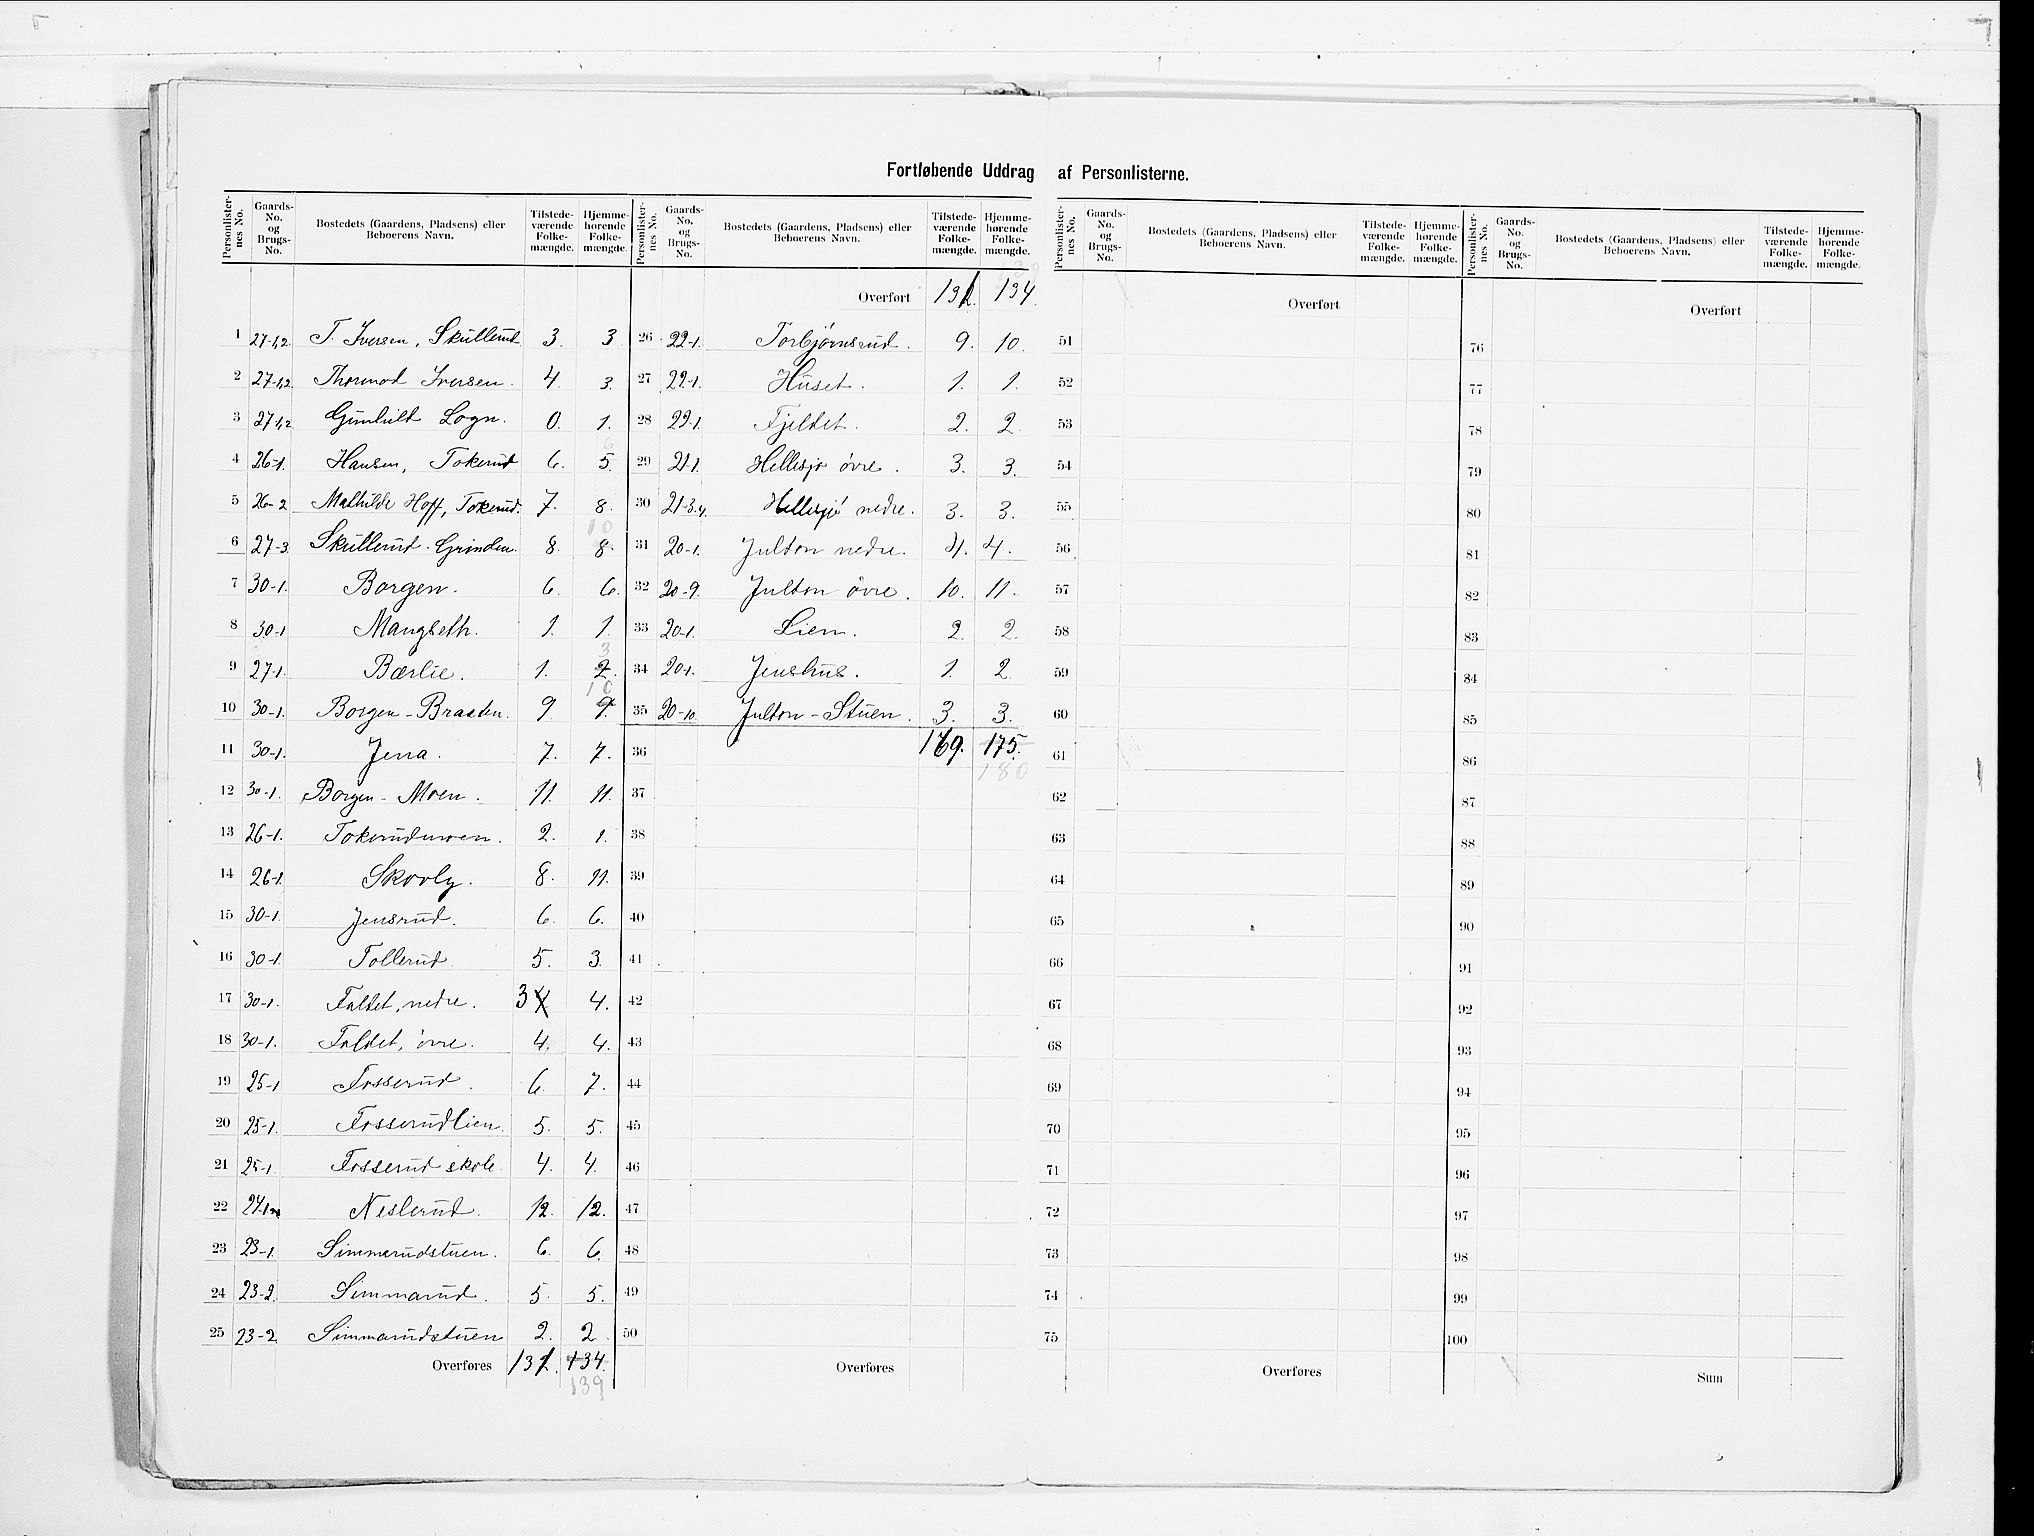 Fortløbende Uddrag af Personlisterne.
Personlister-nes No. | Gaards-No. og Brugs-No. | Bostedets (Gaardens, Pladsens) eller Beboerens Navn. | Tilstede-værende Folke-mængde. | Hjemme-hørende Folke-mængde.
1 27-1,2 T. Iversen, Skullerud 3. 3
2 27-1,2 Thormod Iversen. 4. 3.
3 27-1,2 Gunhild Logn. 0. 1.
4 26-1. Hansen, Tokerud 6. 5. 6
5 26-2 Mathilde Hoff, Tokerud. 7. 8.
6 27-3 Skullerud-Grinden. 8. 8. 10
7 30-1. Borgen. 6. 6.
8 30-1 Mangseth. 1. 1.
9 27-1. Bærlie. 1. 2. 3
10 30-1. Borgen-Braaten. 9. 9. 10
11 30-1. Jena. 7. 7.
12 30-1. Borgen-Moen. 11. 11.
13 26-1. Tokerudmoen. 2. 1.
14 26-1. Skovly. 8. 11.
15 30-1. Jensrud. 6. 6.
16 30-1. Tollerud. 5. 3.
17 30-1. Faldet, nedre. 3 4 4.
18 30-1. Faldet, øvre. 4. 4.
19 25-1 Fosserud. 6. 7.
20 25-1. Fosserudlien. 5. 5.
21 25-1. Fosserud skole. 4. 4.
22 24-1 Neslerud. 12. 12.
23 23-1. Simmarudstuen. 6. 6.
24 23-2. Simmarud. 5. 5.
25 23-2. Simmarudstuen 2. 2.
Overføres 131. 134. 139
Personlister-nes No. | Gaards-No. og Brugs-No. | Bostedets (Gaardens, Pladsens) eller Beboerens Navn. | Tilstede-værende Folke-mængde. | Hjemme-hørende Folke-mængde.
Overført 131. 134. 139
26 22-1. Torbjørnsrud. 9. 10.
27 22-1. Huset. 1. 1.
28 22-1. Fjeldet. 2. 2.
29 21-1. Hellesjø øvre. 3. 3.
30 21-3.4. Hellesjø nedre. 3. 3.
31 20-1. Julton nedre. 4. 4.
32 20-9. Julton øvre. 10. 11.
33 20-1. Lien. 2. 2.
34 20-1. Jenshus. 1. 2.
35 20-10. Julton-Stuen. 3. 3.
36 169. 175. 180
37
38
39
40
41
42
43
44
45
46
47
48
49
50
Overføres
Personlister-nes No. | Gaards-No. og Brugs-No. | Bostedets (Gaardens, Pladsens) eller Beboerens Navn. | Tilstede-værende Folke-mængde. | Hjemme-hørende Folke-mængde.
Overført
51
52
53
54
55
56
57
58
59
60
61
62
63
64
65
66
67
68
69
70
71
72
73
74
75
Overføres
Personlister-nes No. | Gaards-No. og Brugs-No. | Bostedets (Gaardens, Pladsens) eller Beboerens Navn. | Tilstede-værende Folke-mængde. | Hjemme-hørende Folke-mængde.
Overført
76
77
78
79
80
81
82
83
84
85
86
87
88
89
90
91
92
93
94
95
96
97
98
99
100
Sum